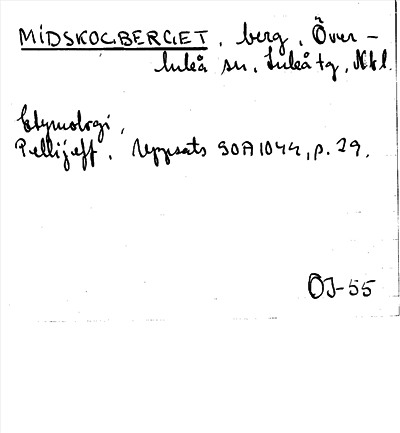 MIDSKOGBERGET, berg, Över-
luleå sn, Luleå tg, Nbl.
Etymologi,
Pellijeff, Uppsats SOFI 1044, p. 29.
ÖJ-55